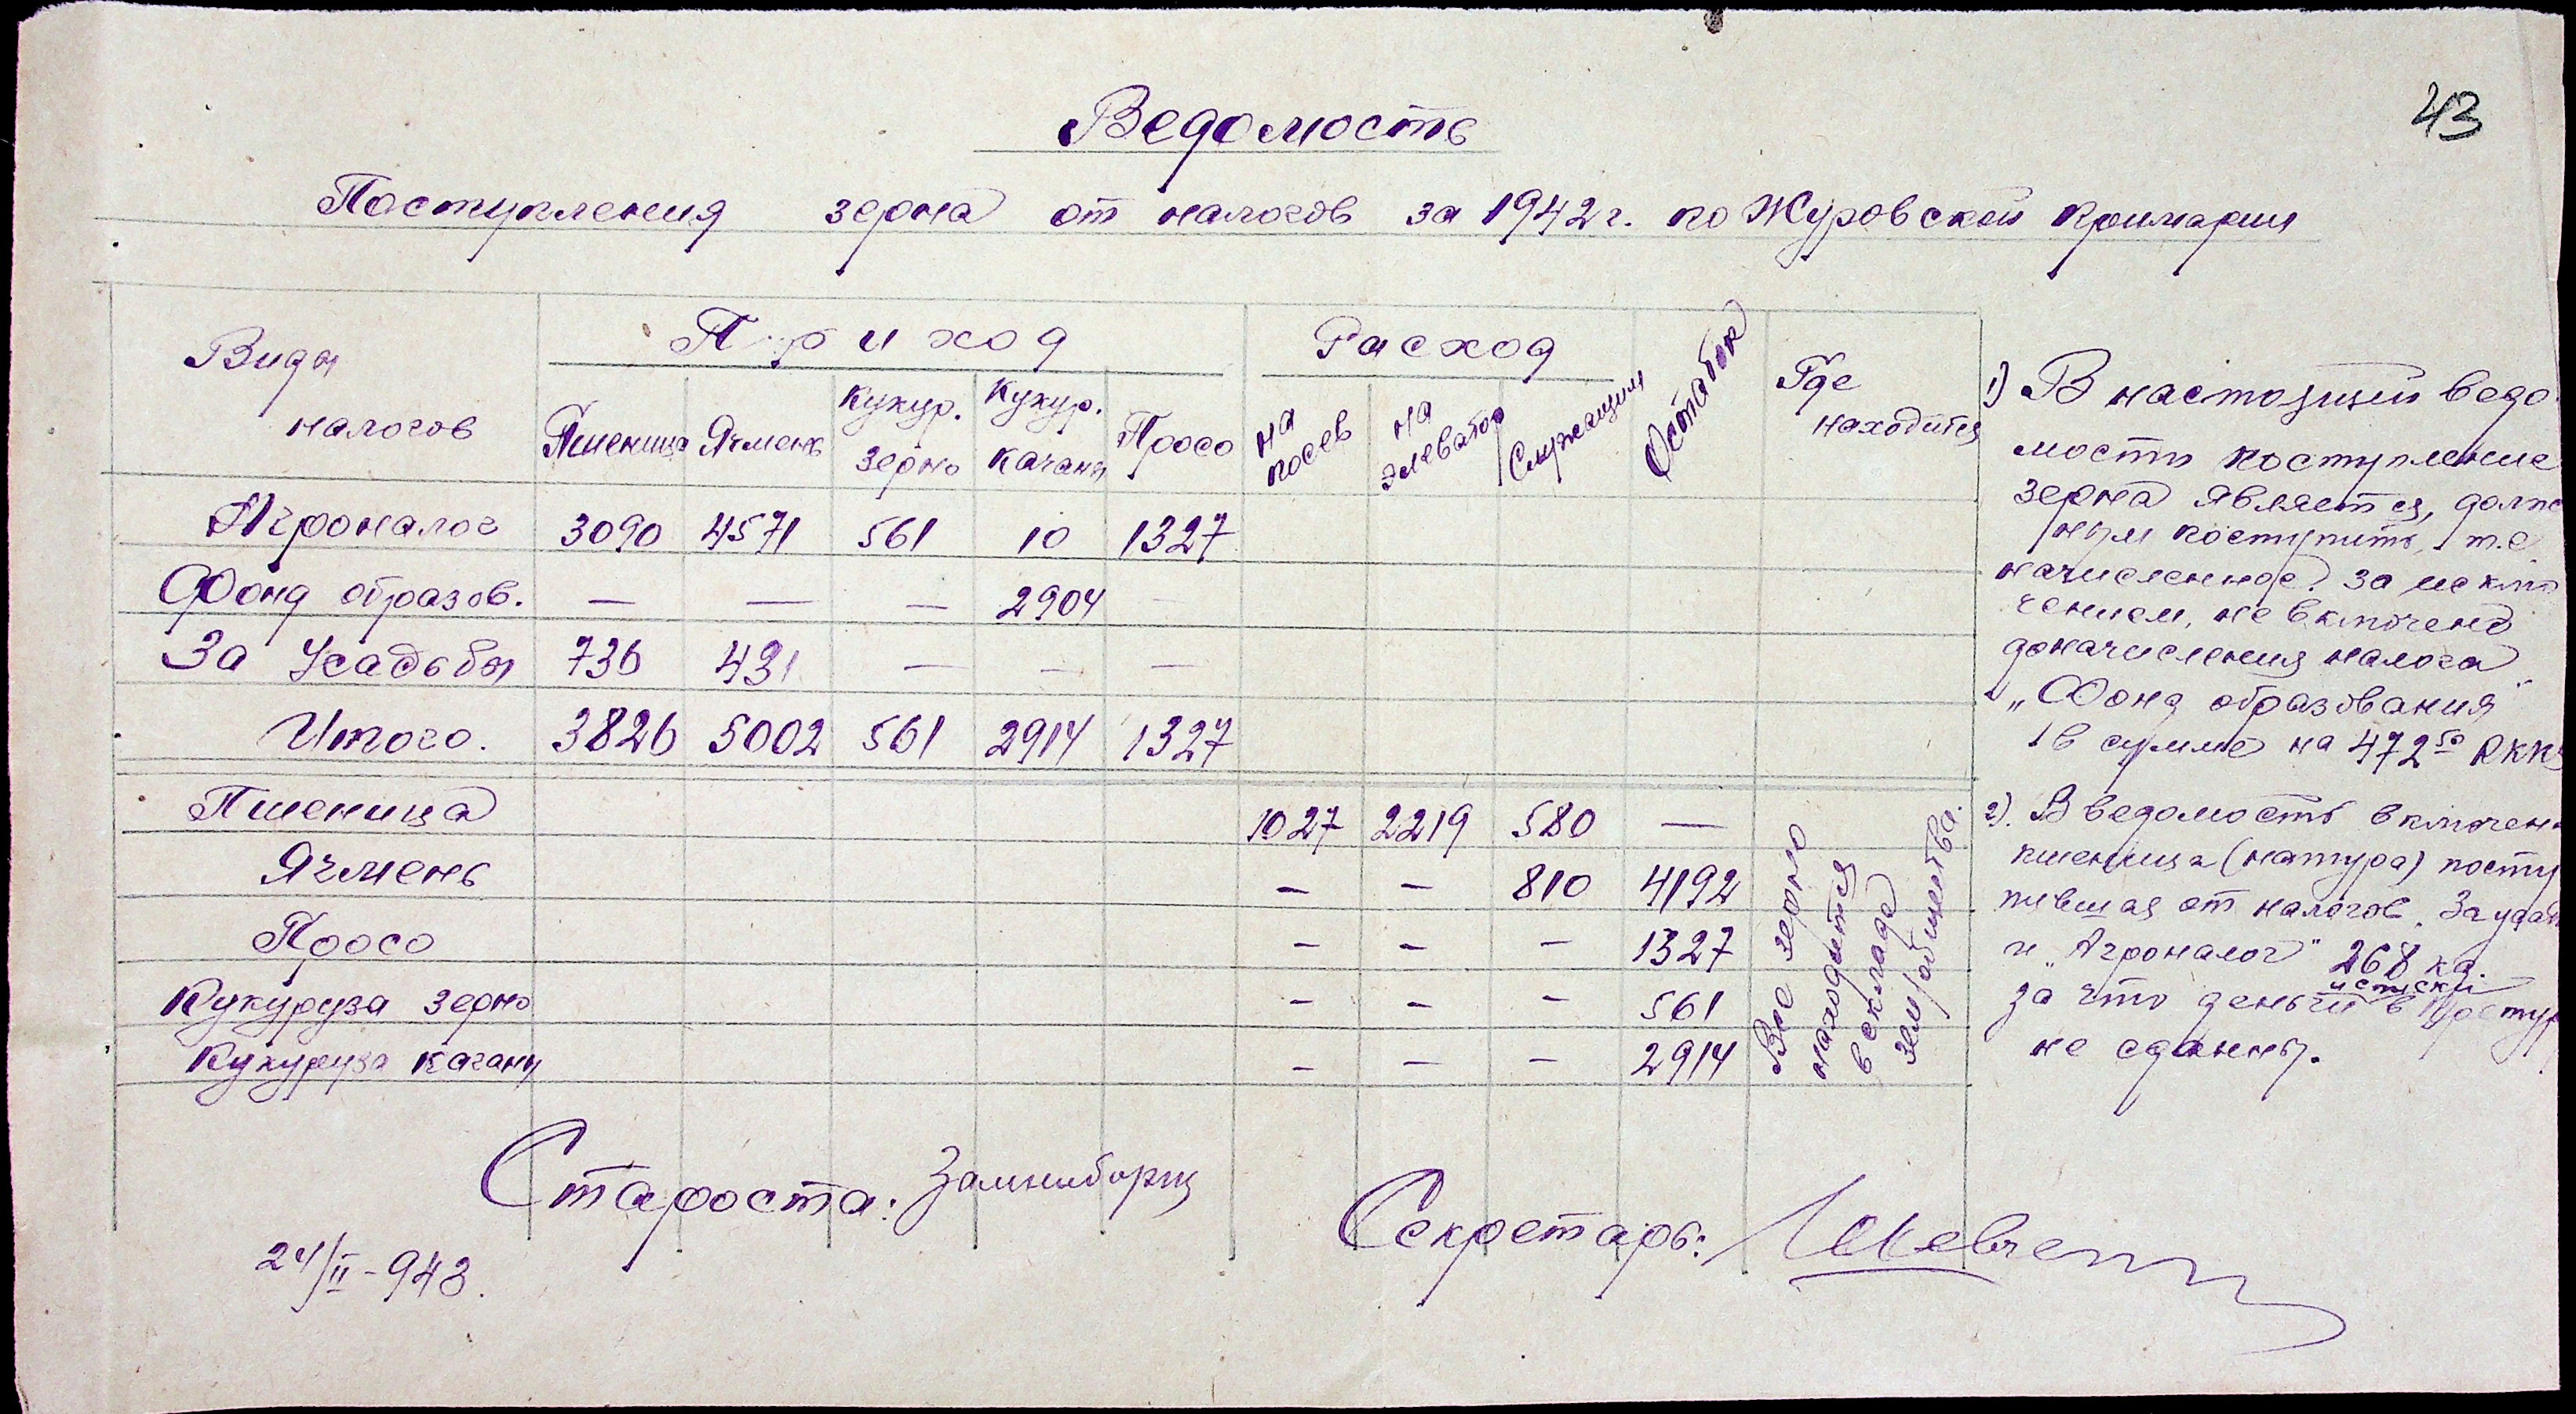 43
Ведомость
Поступления зерна от налогов за 1942 г. по Журовской примарии
Виды налогов
Приход
Расход
Остаток
Где находится
Пшеница Ячмень Кукур. зерно Кукур. качаны Просо на посев на элеватор Служащим
Агроналог 3090 4571 561 10 1327
Фонд образов. — — — 2904 —
За Усадьбы 736 431 — — —
Итого. 3826 5002 561 2914 1327
Пшеница 1027 2219 580 —
Ячмень – – 810 4192
Просо – – – 1327
Кукуруза зерно – – – 561
Кукуруза качаны – – – 2914
Все зерно
находится
в складе
земобщества.
1) В настоящей ведо
мости поступление
зерна является, долж
ным поступить, т.е
начисленное. За исклю
чением, не включено
доначисления налога
„Фонд образования"
в сумме на 472 50 RKKS
2). В ведомость включен
пшеница (натура) посту
пившая от налогов. За усадь
и „Агроналог" 268 кг.
за что деньги в
не сданны.
Староста:
Секретарь:
24/II-943.